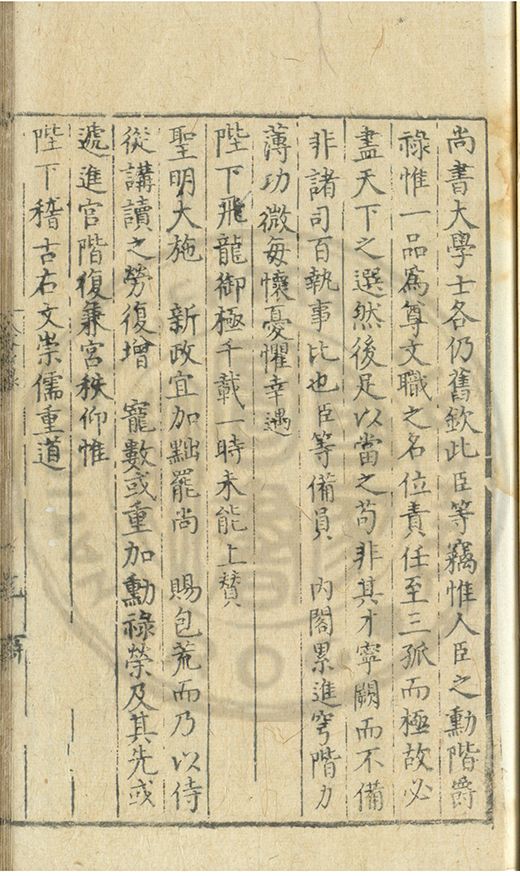 尚書大學士各仍舊欽此臣等竊惟人臣之勳階爵
祿惟一品爲尊文職之名位責任至三孤而極故必
盡天下之選然後足以當之苟非其才寧闕而不備
非諸司百執事比也臣等備員 內閣累進穹階力
薄功微每懷憂懼幸遇
陛下飛龍御極千載一時未能上賛
聖明大施 新政宜加黜罷尚 賜包荒而乃以侍
從講讀之勞復增 寵數或重加勳祿榮及其先或
遞進官階復兼宮秩仰惟
陛下稽古右文崇儒重道